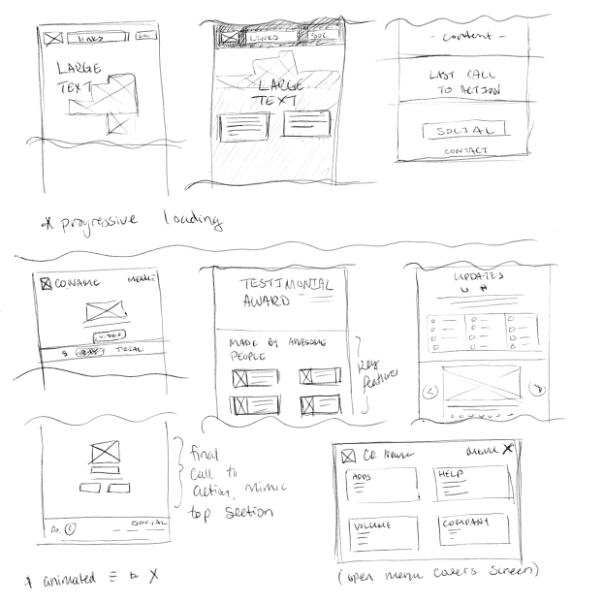 LINKS
SOC
LARGE
TEXT
LINKS
SOC.
LARGE
TEXT
- Content -
LAST CALL
TO ACTION
SOCIAL
CONTACT
* progressive loading
CONAME MENU
VIDEO
TRIAL
TESTIMONIAL
AWARD
MADE BY AWESOME
PEOPLE
key
features
UPDATES
final
call to
action, mimic
top section
SOCIAL
CO. NAME MENU X
APPS
HELP
VOLUME
COMPANY
* animated ☰ to X
(open menu covers screen)